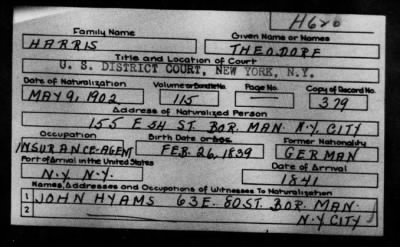 H620
Family Name
Given Name or Names
HARRIS THEODORE
Title and Location of Court
U. S. DISTRICT COURT, NEW YORK, N.Y.
Date of Naturalization Volume or Bundle No. Page No. Copy of Record No.
MAY 9, 1902 115 379
Address of Naturalized Person
155 E 54 ST. BOR. MAN. N.Y. CITY
Occupation Birth Date or Age Former Nationality
INSURANCE-AGENT FEB. 26, 1839 GERMAN
Port of Arrival in the United States Date of Arrival
N.Y. N.Y. 1841
Names, Addresses and Occupations of Witnesses To Naturalization
1 JOHN HYAMS 63 E. 80 ST. BOR. MAN.
2 N.Y. CITY